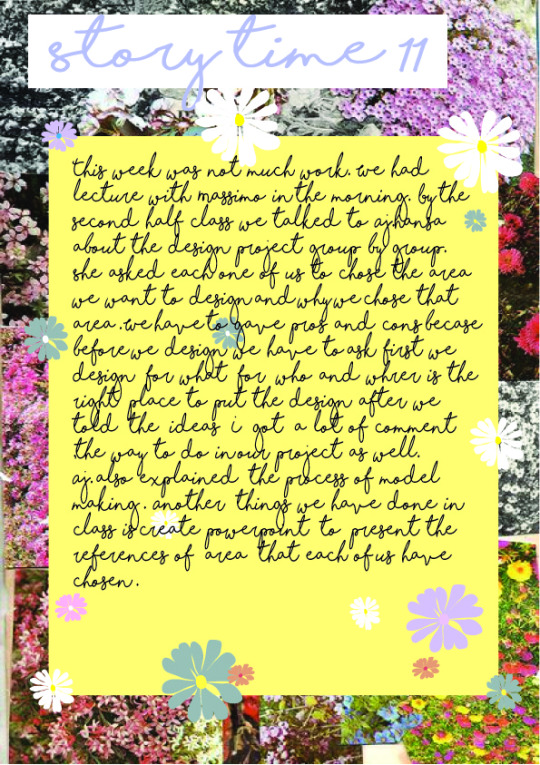 story time 11
this week was not much work. we had
lecture with massimo in the morning. by the
second half class we talked to ajhansa
about the design project group by group.
she asked each one of us to chose the area
we want to design and why we chose that
area. we have to gave pros and cons becase
before we design we have to ask first we
design for what for who and whrer is the
right place to put the design after we
told the ideas i got a lot of comment
the way to do in our project as well.
aj. also explained the process of model
making. another things we have done in
class is create powerpoint to present the
references of area that each of us have
chosen.